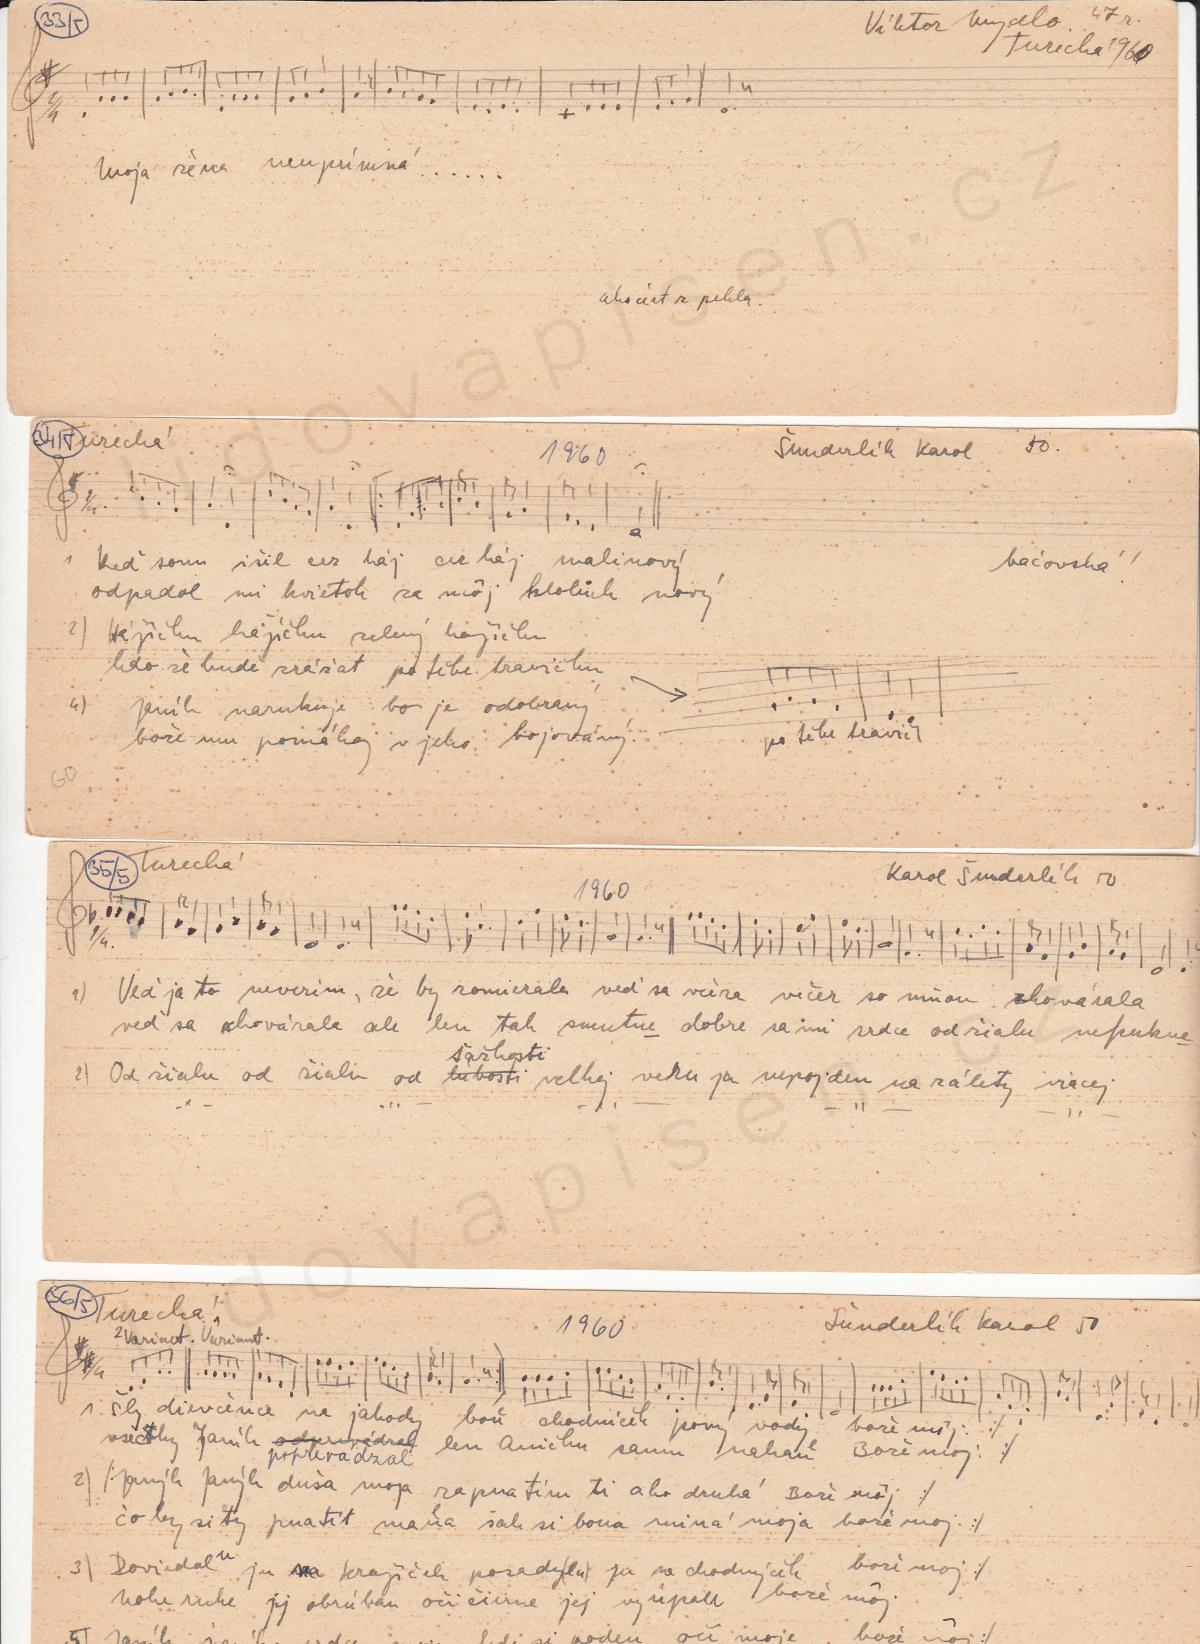 33/5
Viktor Mydlo 47 r.
Turecká 1960
Moja žena neuprímná......
ako čert z pekla.
34/5 Turecká
1960
Šunderlík Karol 50.
1 Keď som išil cez háj cez háj malinový
bačovská!
odpadol mi kvietok za môj klobúk nový
2) Hájíčku hájíčku zelený hajíčku
kdo že bude zrážat po tebe travičku
4) Janík narukuje bo je odobraný
bože mu pomáhaj v jeho bojováný.
po tebe travič
GO
35/5 Turecká
1960
Karol Šunderlík 50
1) Veď ja to neverím, že by zomierala veď sa včera večer so mňou shovárala
veď sa shovárala ale len tak smutne dobre sa mi srdce od žialu nepukne
ťažkosti
2) Od žialu od žialu od lubosti velkej veru ja nepojdem na zálety viacej
36/5 Turecká
1960
Šunderlík Karol 50
2 Variant. Variant.
1. Šly dievčence na jahody bou chodníček pový vody bože mój. :/
všetky Janík odprevádzal len Aničku samu nahau Bože moj. :/
poprevádzal
2) /: Janík Janík duša moja zapnatím ti ako druhá Bože môj :/
čo by si ty pnatit mana šak si bona miná moja bože moj. :/
3) Doviedol ju na krajíček posady(lu) ju na chodníček bože moj. :/
noke ruke jej obrúbau oči čierne jej vyúpau bože môj.
5) Janík oči moje bože môj :/